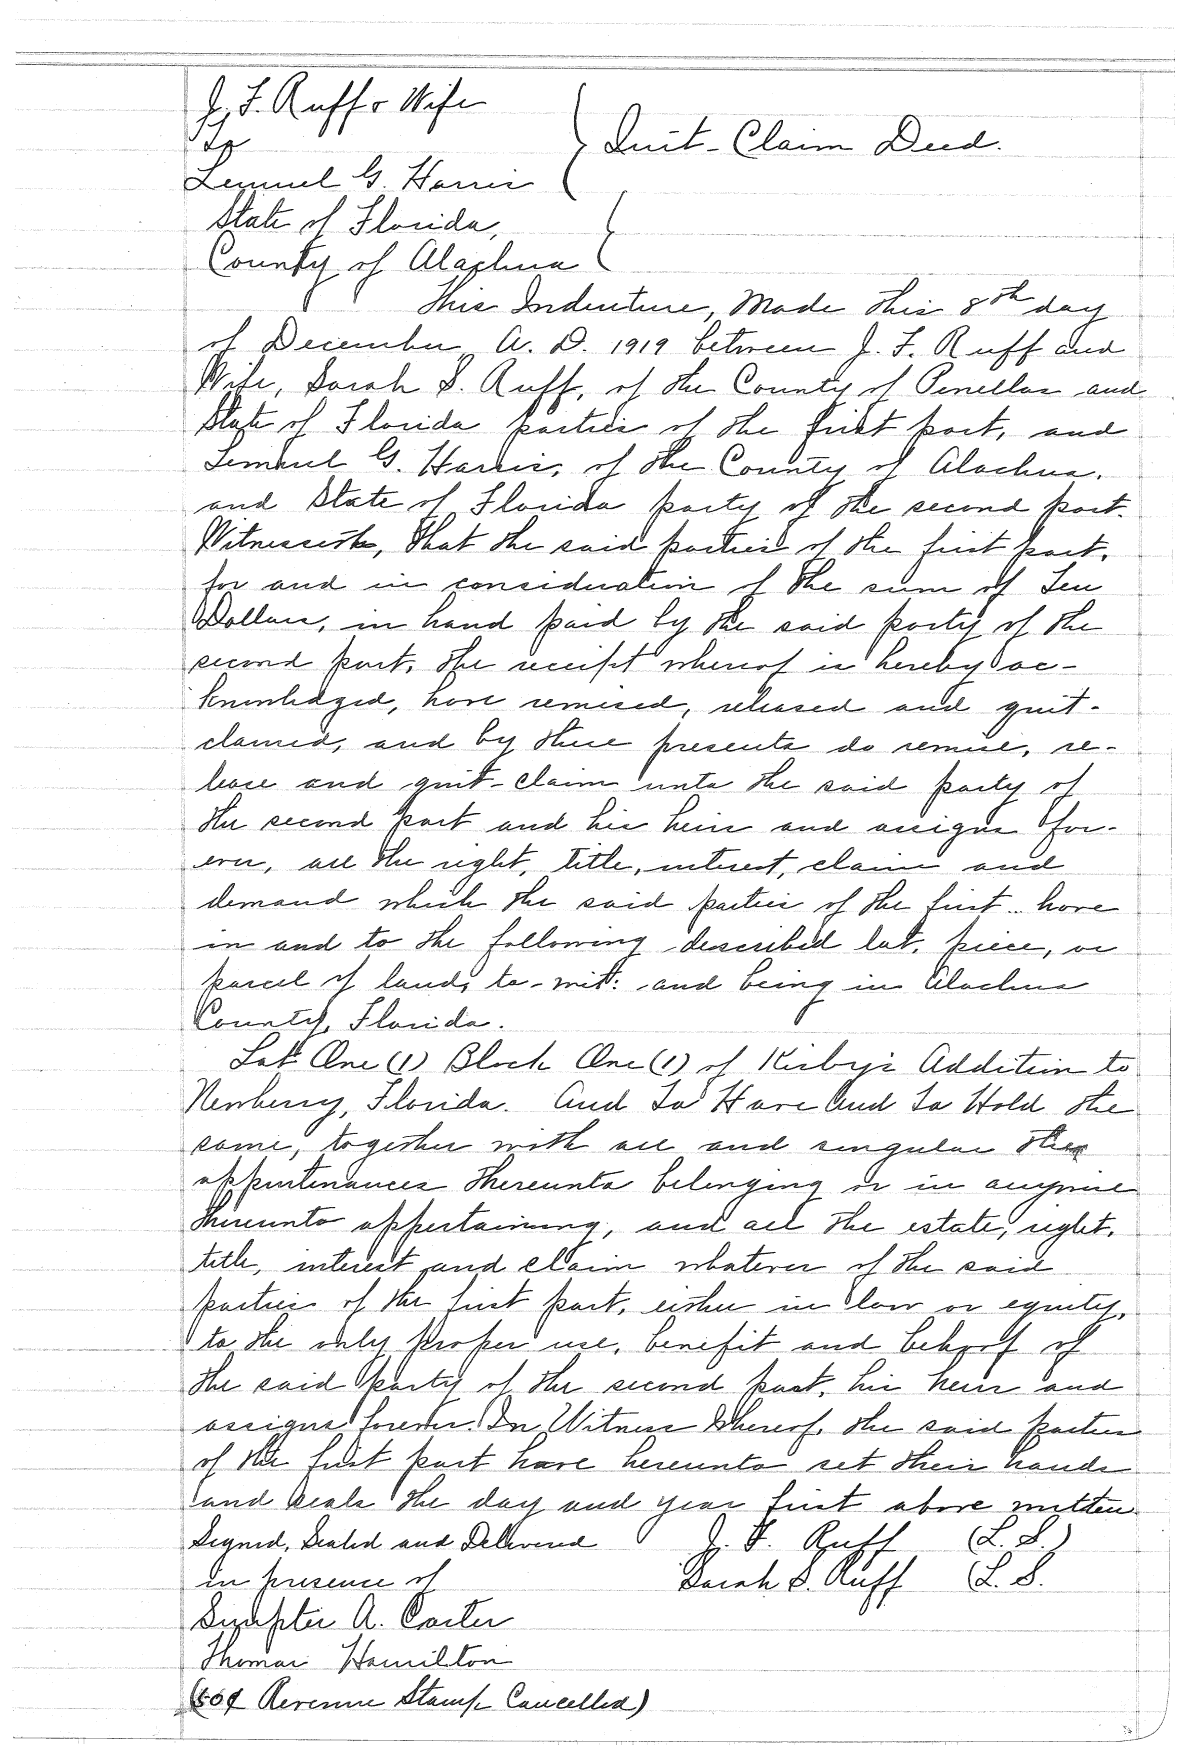 J. F. Ruff & Wife
To
Lemuel G. Harris
Quit-Claim Deed.
State of Florida,
County of Alachua
This Indenture, Made this 8th day
of December A. D. 1919 between J. F. Ruff and
Wife, Sarah S. Ruff, of the County of Penellas and
State of Florida parties of the first part, and
Lemuel G. Harris, of the County of Alachua.
and State of Florida party of the second part.
Witnesseth, that the said parties of the first part,
for and in consideration of the sum of Ten
Dollars, in hand paid by the said party of the
second part, the receipt whereof is hereby ac-
knowledged, have remised, released and quit-
claimed, and by these presents do remise, re-
lease and quit-claim unto the said party of
the second part and his heirs and assigns for-
ever, all the right, title, interest, claim and
demand which the said parties of the first.. have
in and to the following described lot, piece, or
parcel of land, to-wit: and being in Alachua
County, Florida.
Lot One (1) Block One (1) of Kirby's Addition to
Newberry, Florida. And To Have And To Hold the
same, together with all and singular the
appurtenances thereunto belonging or in anywise
thereunto appertaining, and all the estate, right,
title, interest and claim whatever of the said
parties of the first part, either in law or equity,
to the only proper use, benefit and behoof of
the said party of the second part, his heirs and
assigns forever. In Witness Whereof, the said parties
of the first part have hereunto set their hands
and seals the day and year first above written
Signed, Sealed and Delivered J. F. Ruff (L. S.)
in presence of Sarah S. Ruff (L. S.
Sumpter A. Carter
Thomas Hamilton
(50¢ Revenue Stamp Cancelled)